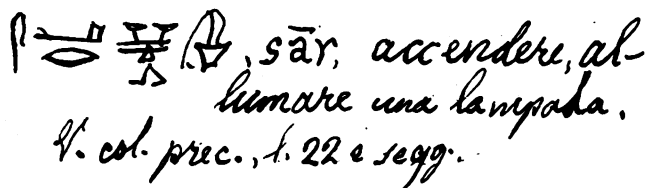 𓋴𓂝𓂋 , sār, accendere, al-
lumare una lampada.
V. col. prec., l. 22 e segg.